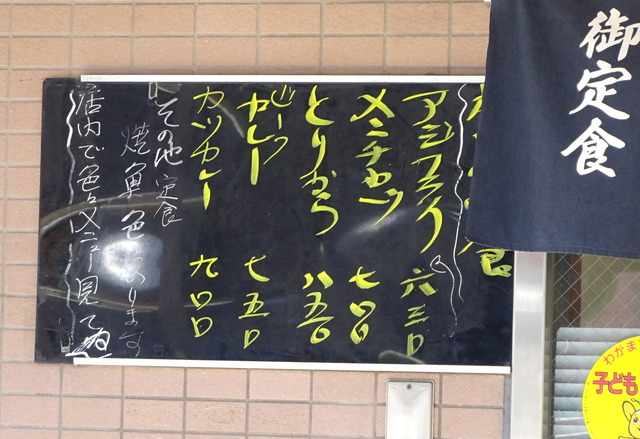 御定食
食
アジフライ 六三〇
メンチカツ 七〇〇
とりから 八五〇
ビーフカレー 七五〇
カツカレー 九〇〇
その他 定食
焼魚 色々あります
店内で色々メニュー見て
わがまま
子ども